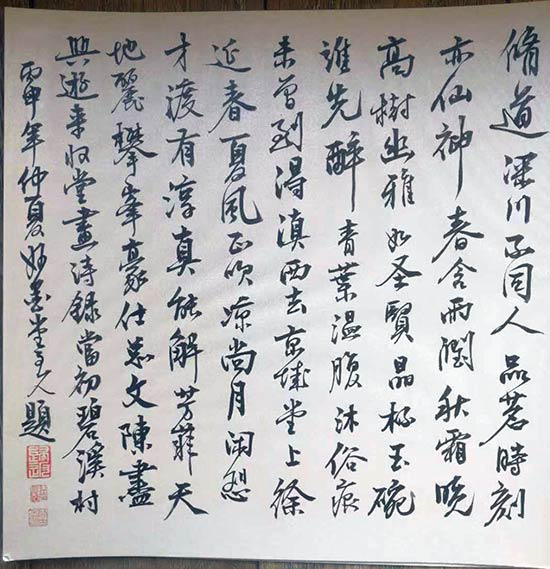 脩道深川不同人品茗時刻
亦仙神春含雨潤秋霜曉
高樹幽雅如圣賢晶杯玉碗
誰先醉青葉温腹沐俗痕
未曾到得滇西去京城堂上徐
延春夏風正吹凉尚月闲想
才渡有淳真能解芳菲天
地麗攀峯豪仕文陳盡
興遊来收堂畫诗錄當初碧溪村
丙申年仲夏妙墨堂主人題